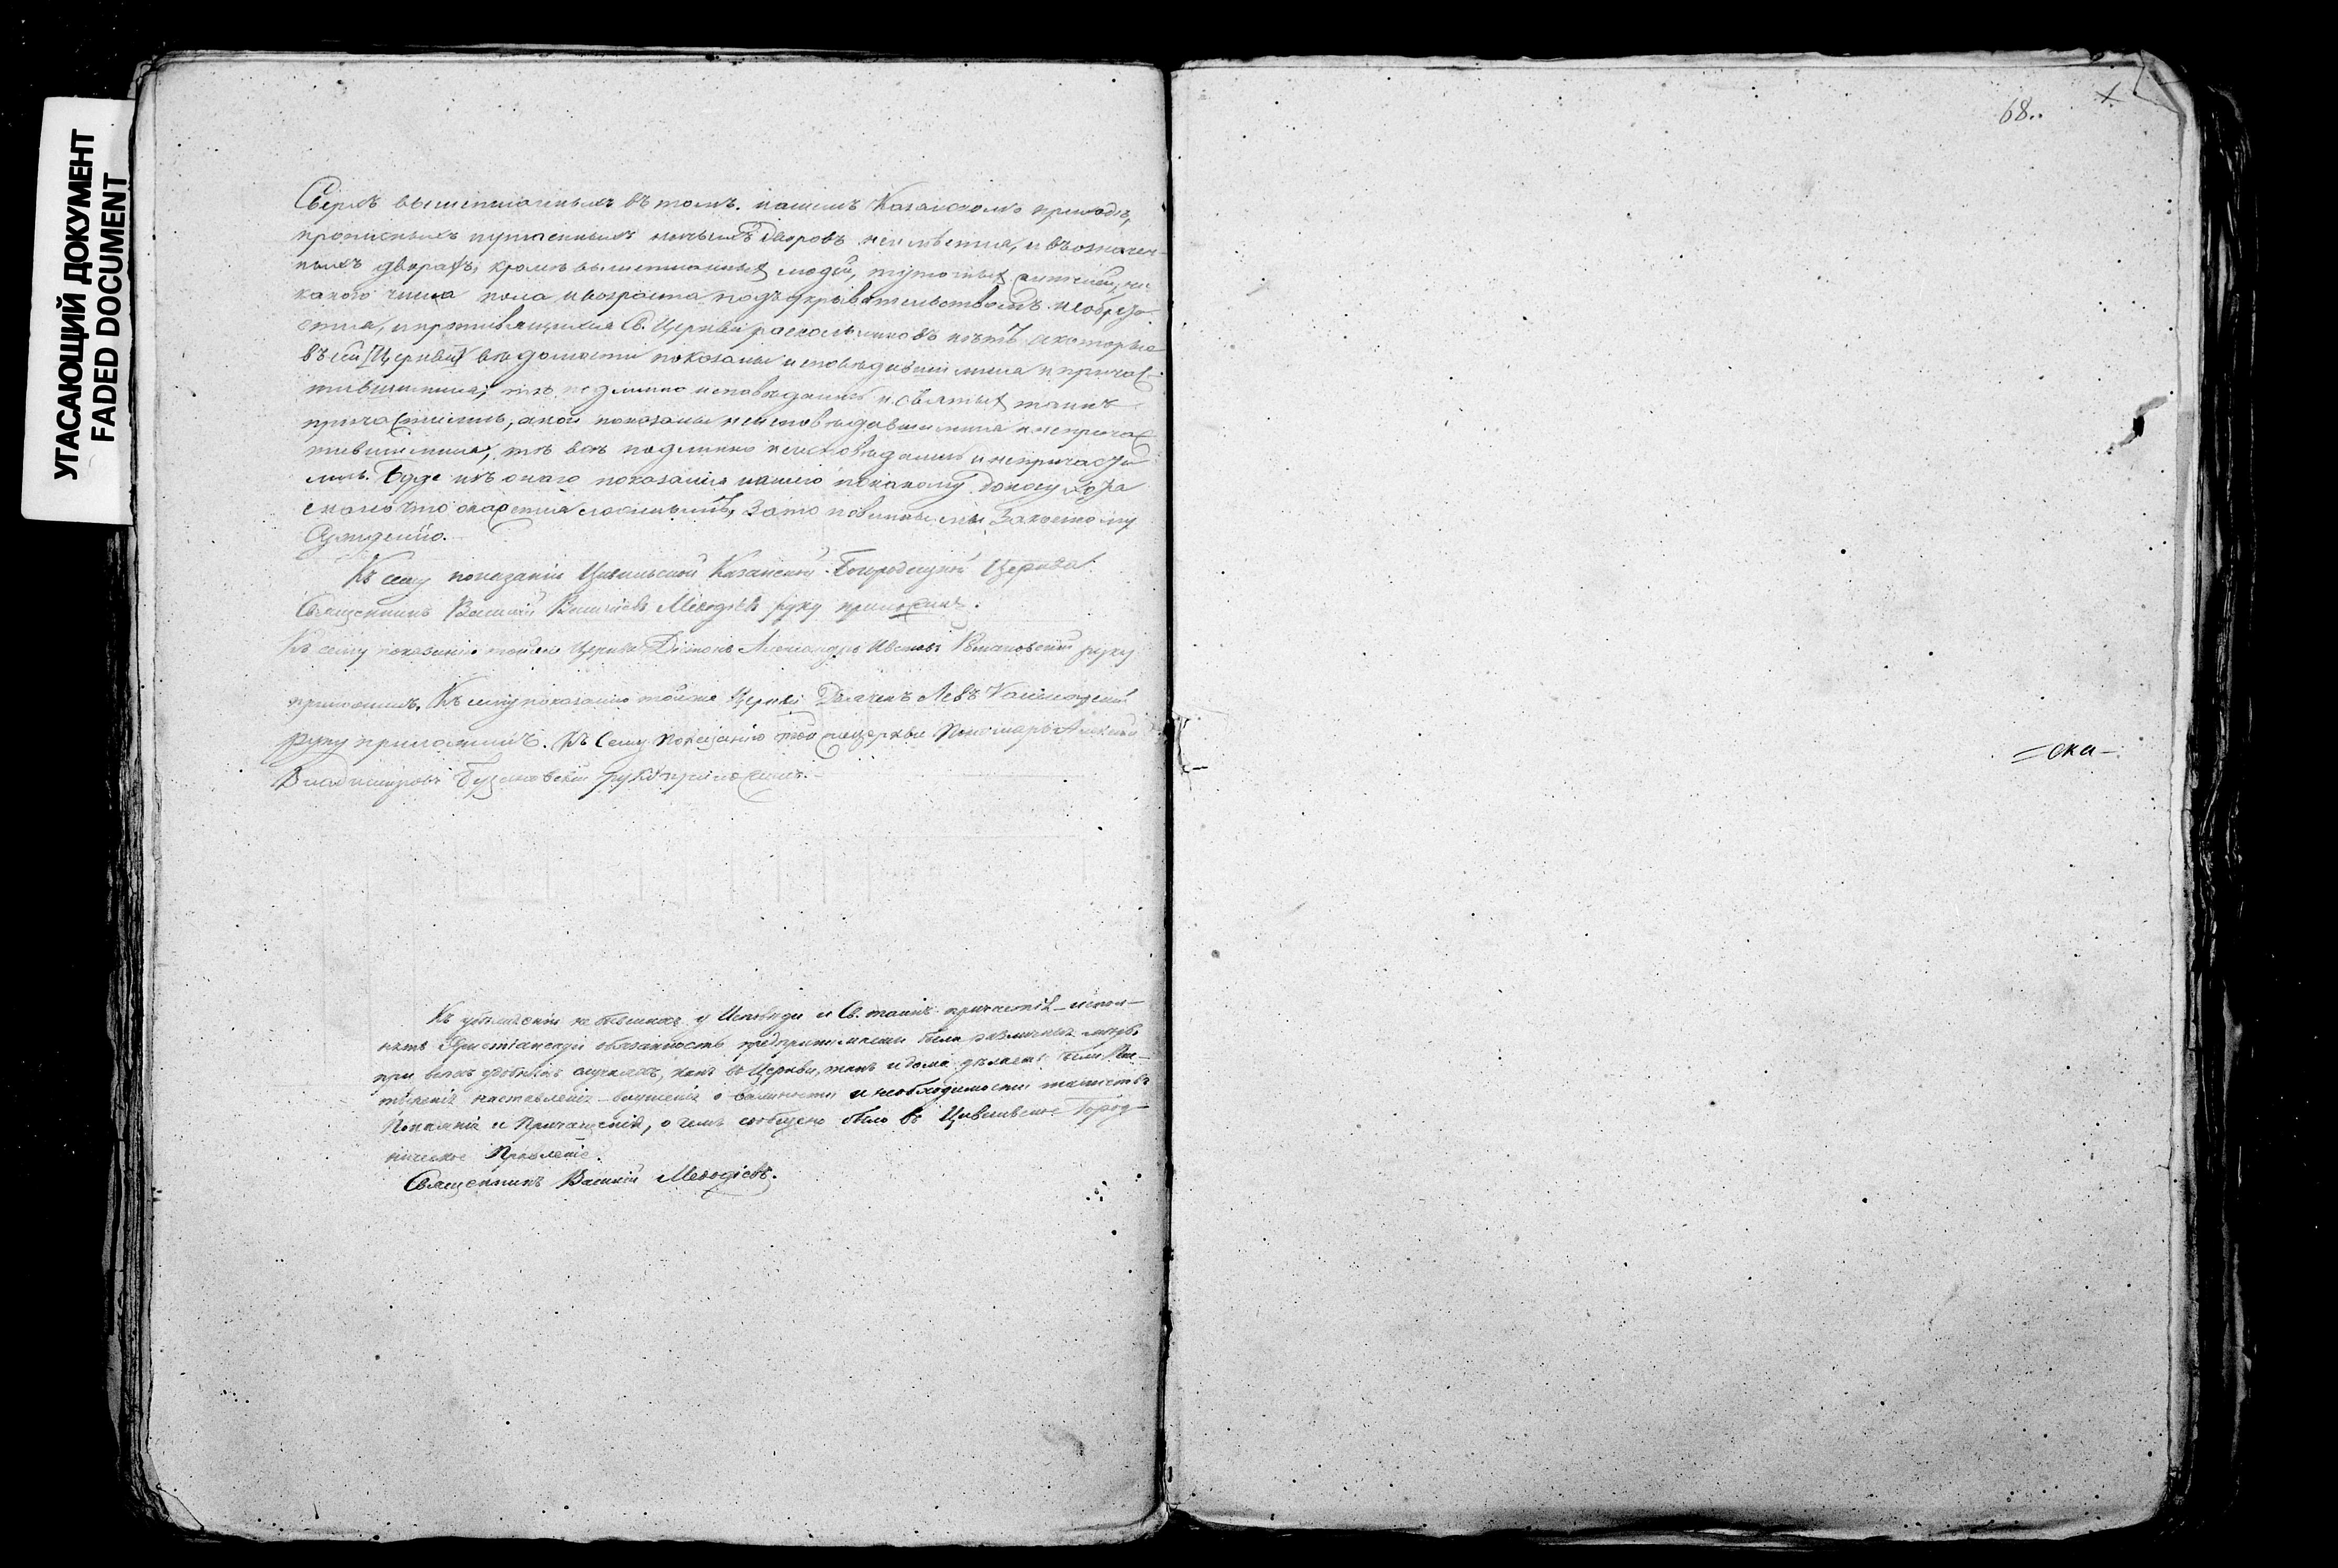 УГАСАЮЩИЙ ДОКУМЕНТ
FADED DOCUMENT
Сверхъ вышеписанныхъ въ томъ нашемъ Казанскомъ приходѣ,
прописныхъ путаенныхъ ничьихъ дворовъ неимѣется, и въозначен-
ныхъ дворахъ, кромѣ вышеписанныхъ людей, тутошныхъ жителей, ни
какого числа пола, ивозраста подъукрывательствомъ необрета-
ется, ипротивящихся Св. Церкви раскольниковъ нѣтъ, акоторые
въ сей Церкви вѣдомости показаны исповѣдавшимися и причас-
тившимися, тѣ подлинно исповѣдались и святыхъ таинъ
причастились, акои показаны неисповѣдавшимися инепричас-
тившимися, тѣ всѣ подлинно неисповѣдались и непричасти-
лись. Буде изъ онаго показанія нашего покакому доносу хотя
мало что окажется ложнымъ, зато повинны мы законному
сужденію.
Къ сему показанію Цивильской Казанской Богородицкой Церкви
Священникъ Василій Васильевъ Меѳодіевъ руку приложилъ.
Къ сему показанію тойже Церкви Діаконъ Александръ Ивановъ руку
приложилъ. Къ сему показанію тойже Церкви Дьячекъ Левъ
руку приложилъ. Къ сему показанію тойжецеркви Пономарь Алексѣй
Владимировъ руку приложилъ.
Къ убѣжденію небывшихъ у Исповѣди и Св. таинъ причастія испол-
нять Христіанскую обязанность предпринимаемы были различныя мѣры:
при всѣхъ удобныхъ случаяхъ, какъ въ Церкви, такъ и дома дѣлаемы были Пас-
тырскія наставленія внушенія о важности и необходимости таинствъ
Покаянія и Причащенія, о чемъ сообщено было въ Цивильское Город-
ническое Правленіе.
Священникъ Василій Меѳодіевъ.
68.
=ска-